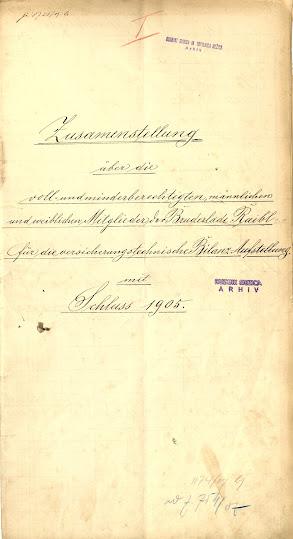 I
ARHIV
Zusamenstellung
über die
voll- und minderberechtigten, männlichen
und weiblichen Mitglieder der Bruderlade Raibl
für die versicherungstechnische Bilanz-Aufstellung
mit
Schluss 1905.
ARHIV